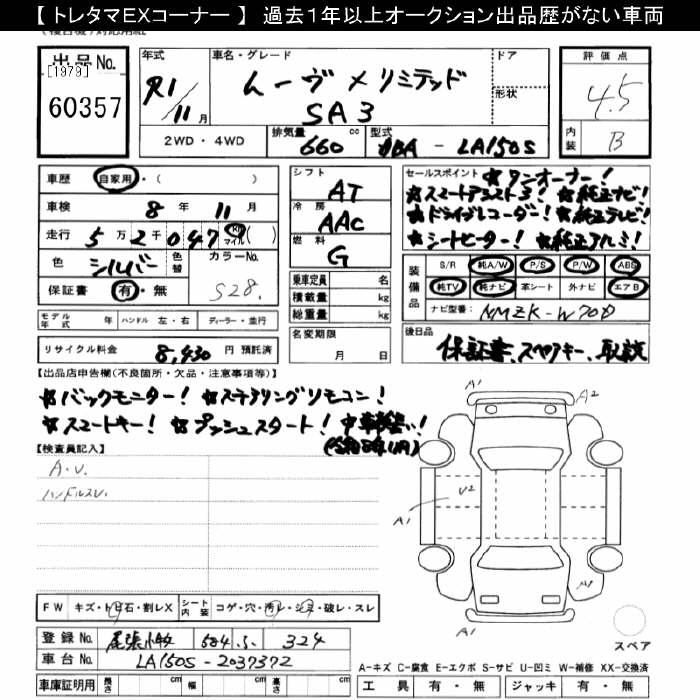 【トレタマEXコーナー】 過去1年以上オークション出品歴がない車両
出品No. [1979] 60357
年式 R1/11月
車名・グレード ムーヴ メリミテッド SA3
ドア
形状
評価点 4.5
内装 B
2WD・4WD
排気量 660 cc
型式 DBA - LA150S
車歴 自家用・( )
車検 8年 11月
走行 5万2千047 Km マイル( )
色 シルバー 色替
カラーNo. S28.
保証書 有・無
シフト AT
冷房 AAC
燃料 G
乗車定員 名
積載量 kg
総重量 kg
セールスポイント ☆ワンオーナー!
☆スマートアシスト3! ☆純正ナビ!
☆ドライブレコーダー! ☆純正テレビ!
☆シートヒーター! ☆純正アルミ!
装備品 S/R 純A/W P/S P/W ABS
純TV 純ナビ 革シート 外ナビ エアB
ナビ型番: NMZK-W70D
モデル年式 年 ハンドル 左・右 ディーラー・並行
名変期限 月 日
後日品 保証書、スペアキー、取説
リサイクル料金 8,430 円 預託済
【出品店申告欄(不良箇所・欠品・注意事項等)】
☆バックモニター! ☆ステアリングリモコン!
☆スマートキー! ☆プッシュスタート!
【検査員記入】
A・U.
ハンドルスレ
A1 A2
U2
A1
A1
スペア
FW キズ・トビ石・割レX シート内装 コゲ・穴・汚レ・シミ・破レ・スレ
登録No. 尾張小牧 504 ふ 324
車台No. LA150S-2037372
A-キズ C-腐食 E-エクボ S-サビ U-凹ミ W-補修 XX-交換済
車庫証明用 長さ cm 幅 cm 高さ cm
工具 有・無 ジャッキ 有・無